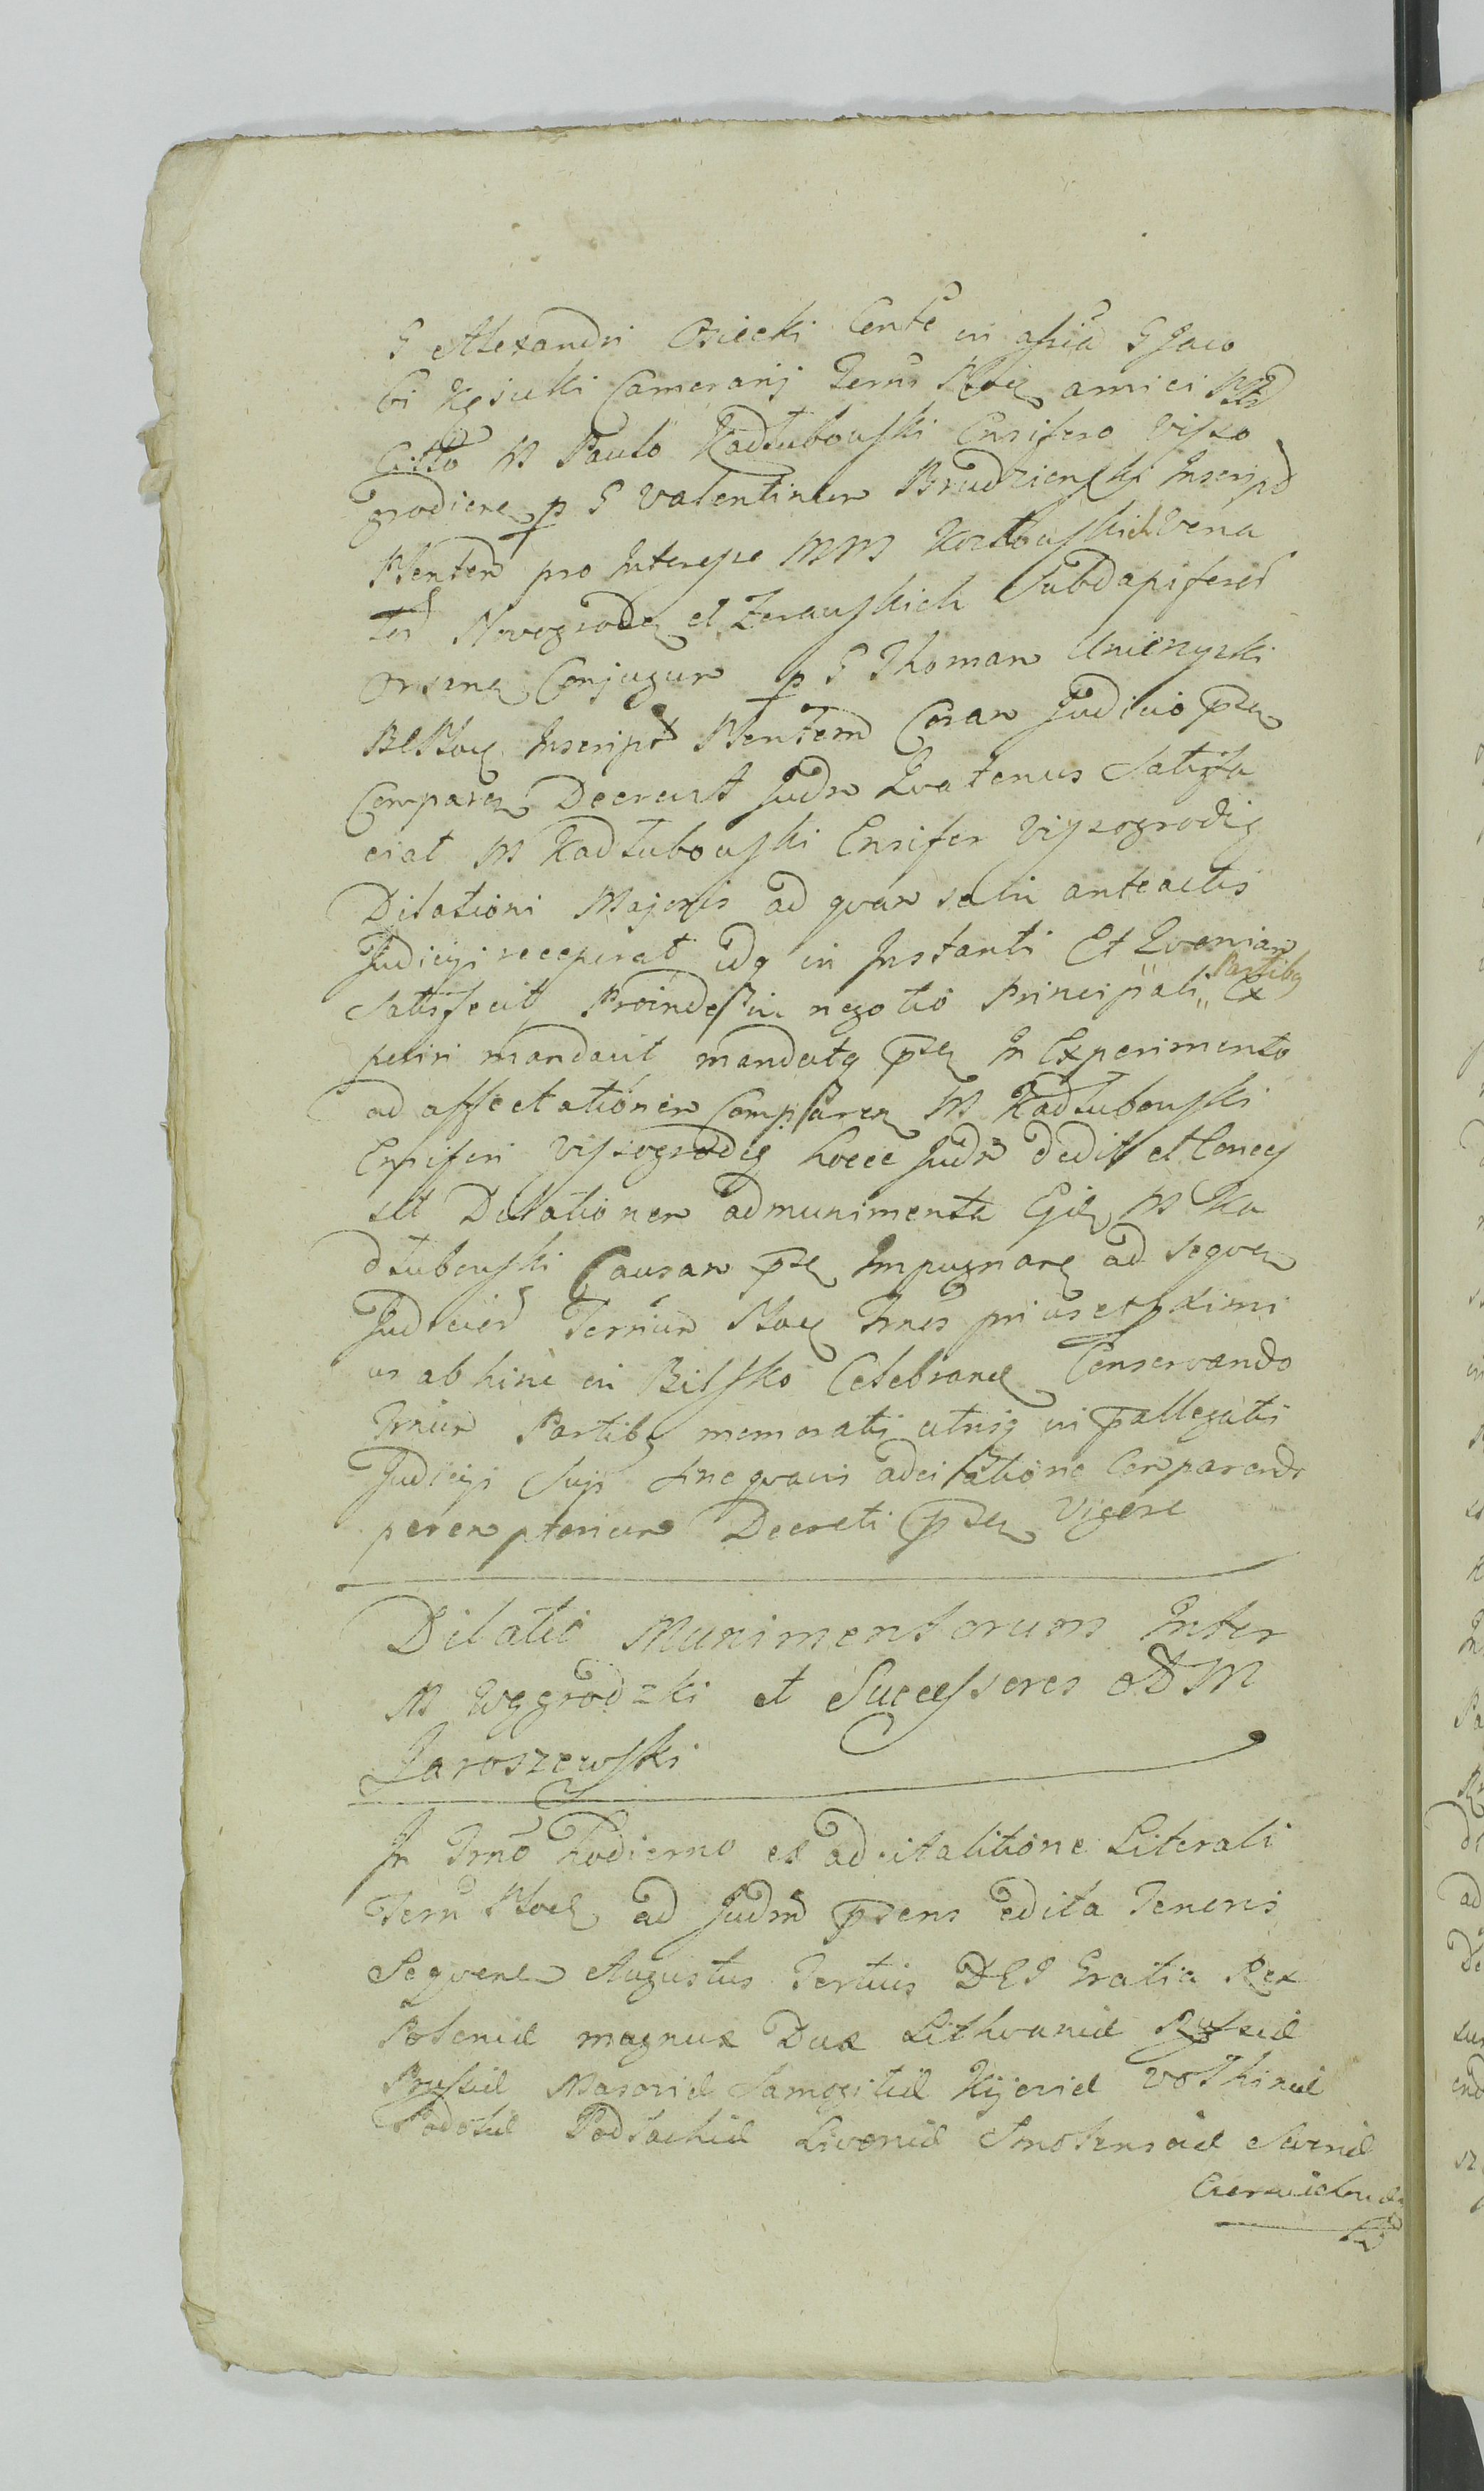 G Alexandri Osiecki Cente in assia G Jaco
bi Kęsicki Camerarij Terrs amici
Citto M Paulo Kadłubowski Ensifero Viszo
grodien p G Valentinum Brudzienski Inscript
Ntentem pro Interesse MM Vena
tor Novogrode et Zerawskich Subdapiferor
Orsane Conjugum p G Thomam Unienyski
Inscript Ntentem Coram Judicio pse
Comparen Decrevit Judm Qvatenus Satisfa
ciat M Kadłubowski Ensifer Viszogrodie
Dilationi Majoris ad quam se in anteactis
Judicijs receperat idq in Instanti Et Qvoniam
satisfecit Proinde in negotio Principali Partibq Ex
periri mandavit mandatq pse In Experimento
ad affectationem Comparen M Kadłubowski
Ensiferi Viszogrodie hocce Judm dedit et Conces
sit Dilationem ad munimenta Ejde M Ka
dłubowski Causam pse Impugnare ad seqven
Judicior Terrium Trnis primus et pximi
us ab hinc in Bilsko Celebrand Conservando
Trnium Partibq memoratis utrisq in pallegatis
Judicijs Suis sine qvavis adcitatione Comparendi
peremptorium Decreti pse Vigore
Dilatio Munimentorum Inter
M Węgrodzki et Successores OD M
Jaroszewski
In Trno hodierno ex adcitatitione Literali
Terri ad Judm psens edita Tenoris
Seqvent Augustus Tertius DEI Gratia Rex
Poloniæ magnus Dux Lithvaniæ Russiæ
Prussiæ Masoviæ Samogitiæ Kijoviæ Volhiniæ
Podoliæ Podlachiæ Livoniæ Smolensciæ Severiæ
Czernichoviæ